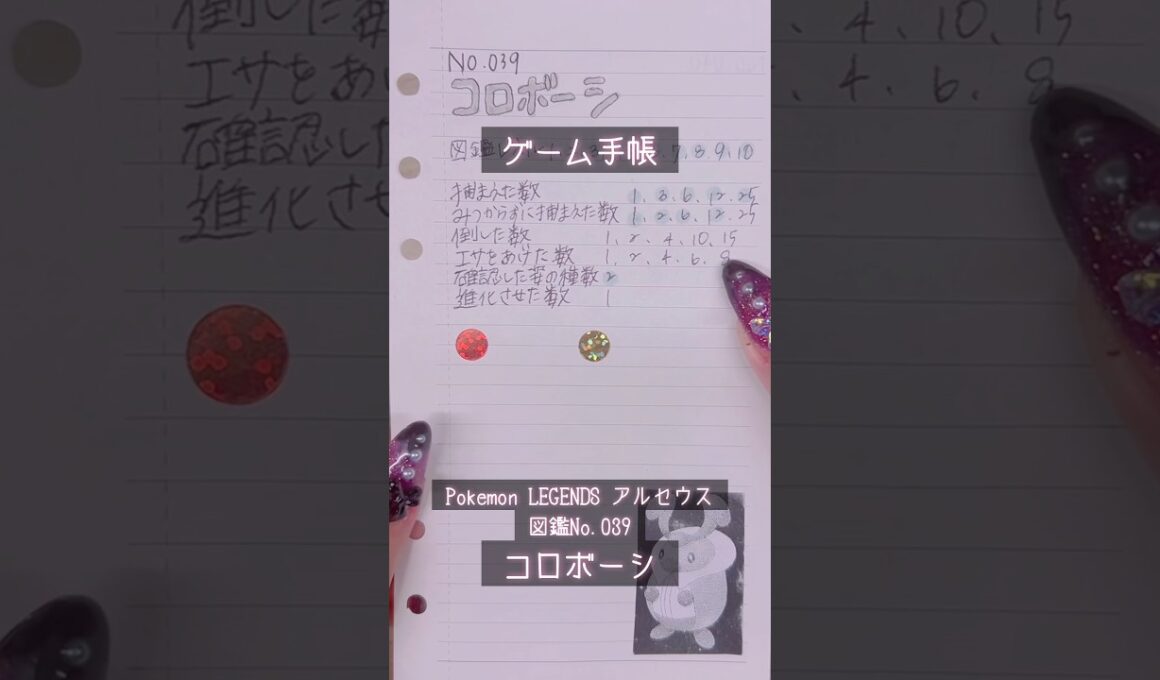 倒した数
エサをあ
確認し
進化させ
No.039
コロボーシ
図鑑
ゲーム手帳
7.8.9.10
捕まえた数 1、3、6、12、25
みつからずに捕まえた数 1、2、6、12、25
倒した数 1、2、4、10、15
エサをあげた数 1、2、4、6、8
確認した姿の種数 2
進化させた数 1
Pokemon LEGENDS アルセウス
図鑑No.039
コロボーシ
4、10、15
4、6、8